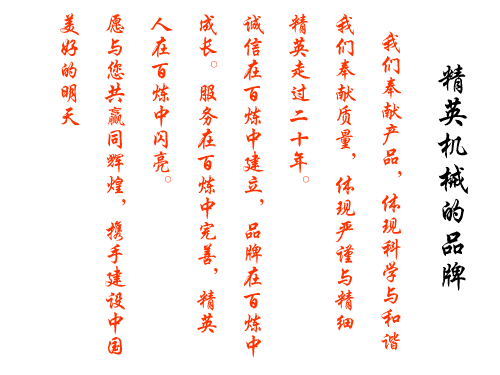 精英机械的品牌
我们奉献产品，体现科学与和谐
我们奉献质量，体现严谨与精细
精英走过二十年。
诚信在百炼中建立，品牌在百炼中
成长。服务在百炼中完善，精英
人在百炼中闪亮。
愿与您共赢同辉煌，携手建设中国
美好的明天